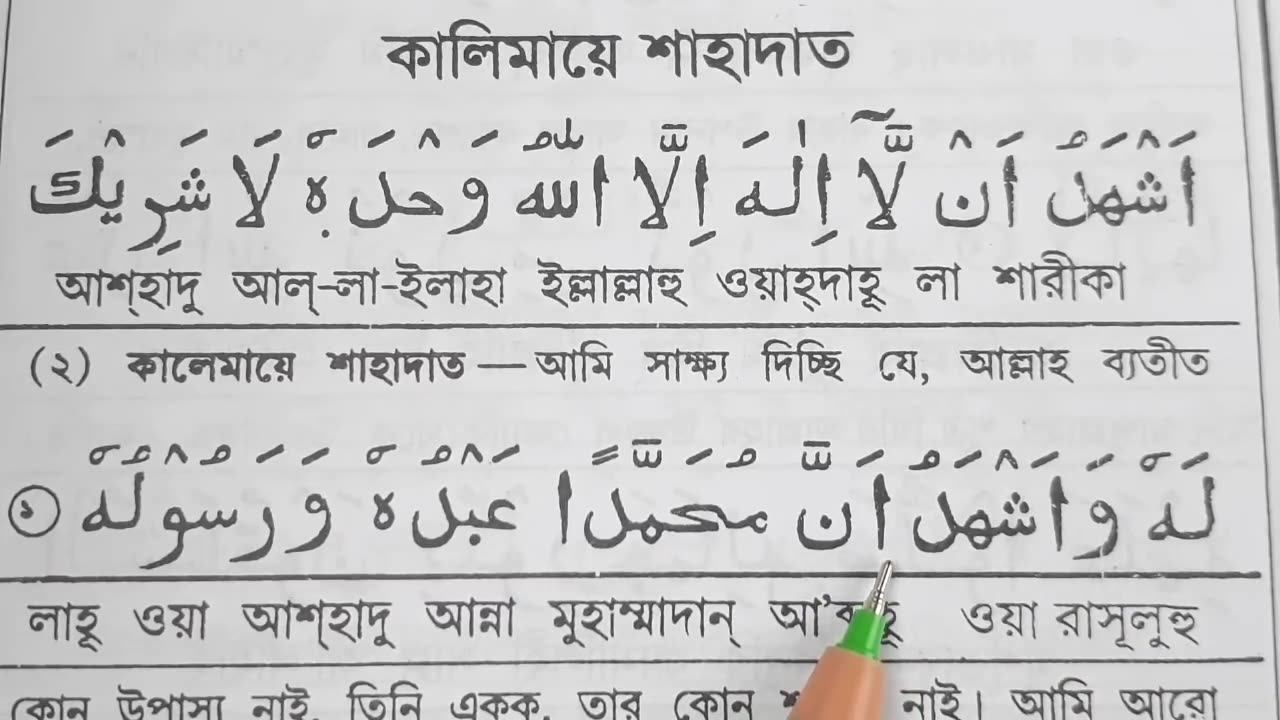 কালিমায়ে শাহাদাত
اَشْهَدُ اَنْ لَّآ اِلٰهَ اِلَّا اللّٰهُ وَحْدَهٗ لَا شَرِيْكَ
আশ্হাদু আল্-লা-ইলাহা ইল্লাল্লাহু ওয়াহ্দাহূ লা শারীকা
(২) কালেমায়ে শাহাদাত — আমি সাক্ষ্য দিচ্ছি যে, আল্লাহ ব্যতীত
لَهٗ وَاَشْهَدُ اَنَّ مُحَمَّدًا عَبْدُهٗ وَرَسُوْلُهٗ
লাহূ ওয়া আশ্হাদু আন্না মুহাম্মাদান্ ওয়া রাসূলুহু
কোন উপাস্য নাই, তিনি একক, তার কোন নাই। আমি আরো